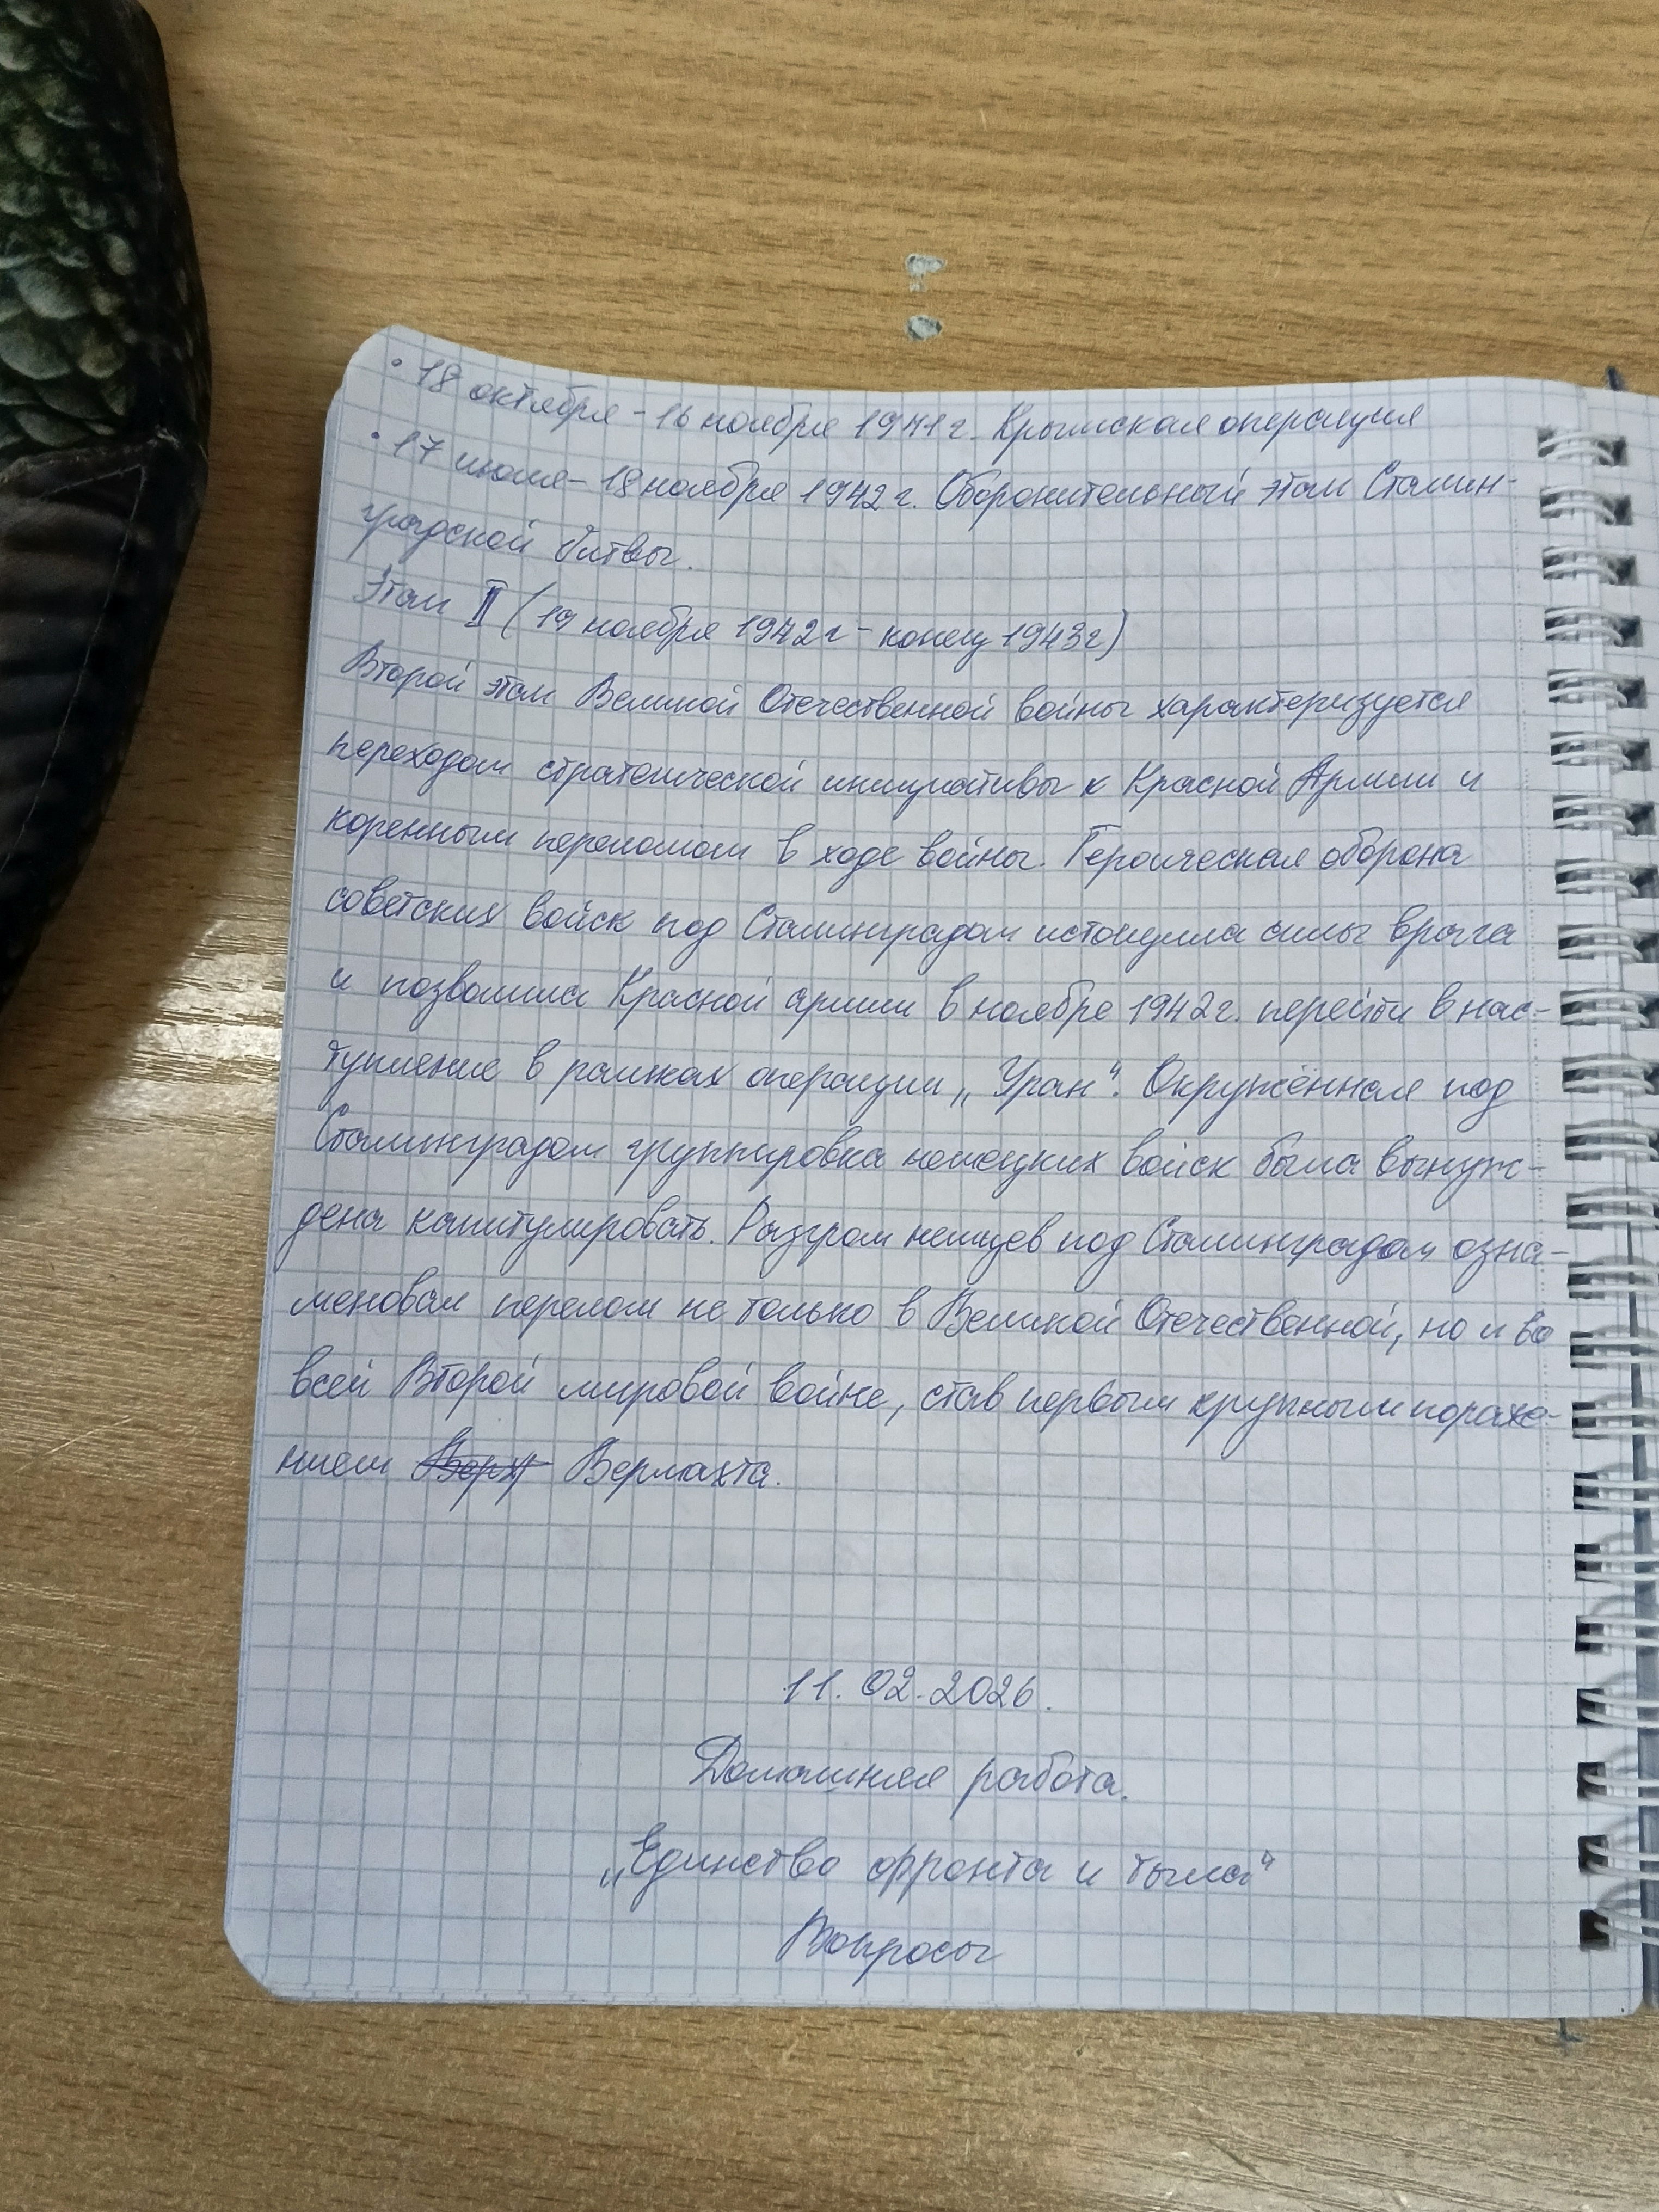 • 18 октября - 16 ноября 1941 г. Крымская операция
• 17 июля - 18 ноября 1942 г. Оборонительный этап Сталин-
градской битвы.
Этап II (19 ноября 1942г - конец 1943г)
Второй этап Великой Отечественной войны характеризуется
переходом стратегической инициативы к Красной Армии и
коренным переломом в ходе войны. Героическая оборона
советских войск под Сталинградом истощила силы врага
и позволила Красной армии в ноябре 1942г. перейти в нас-
тупление в рамках операции „Уран“. Окружённая под
Сталинградом группировка немецких войск была вынуж-
дена капитулировать. Разгром немцев под Сталинградом озна-
меновал перелом не только в Великой Отечественной, но и во
всей Второй мировой войне, став первым крупным пораже-
нием Вермахта.
11.02.2026.
Домашняя работа.
„Единство фронта и тыла“
Вопросы